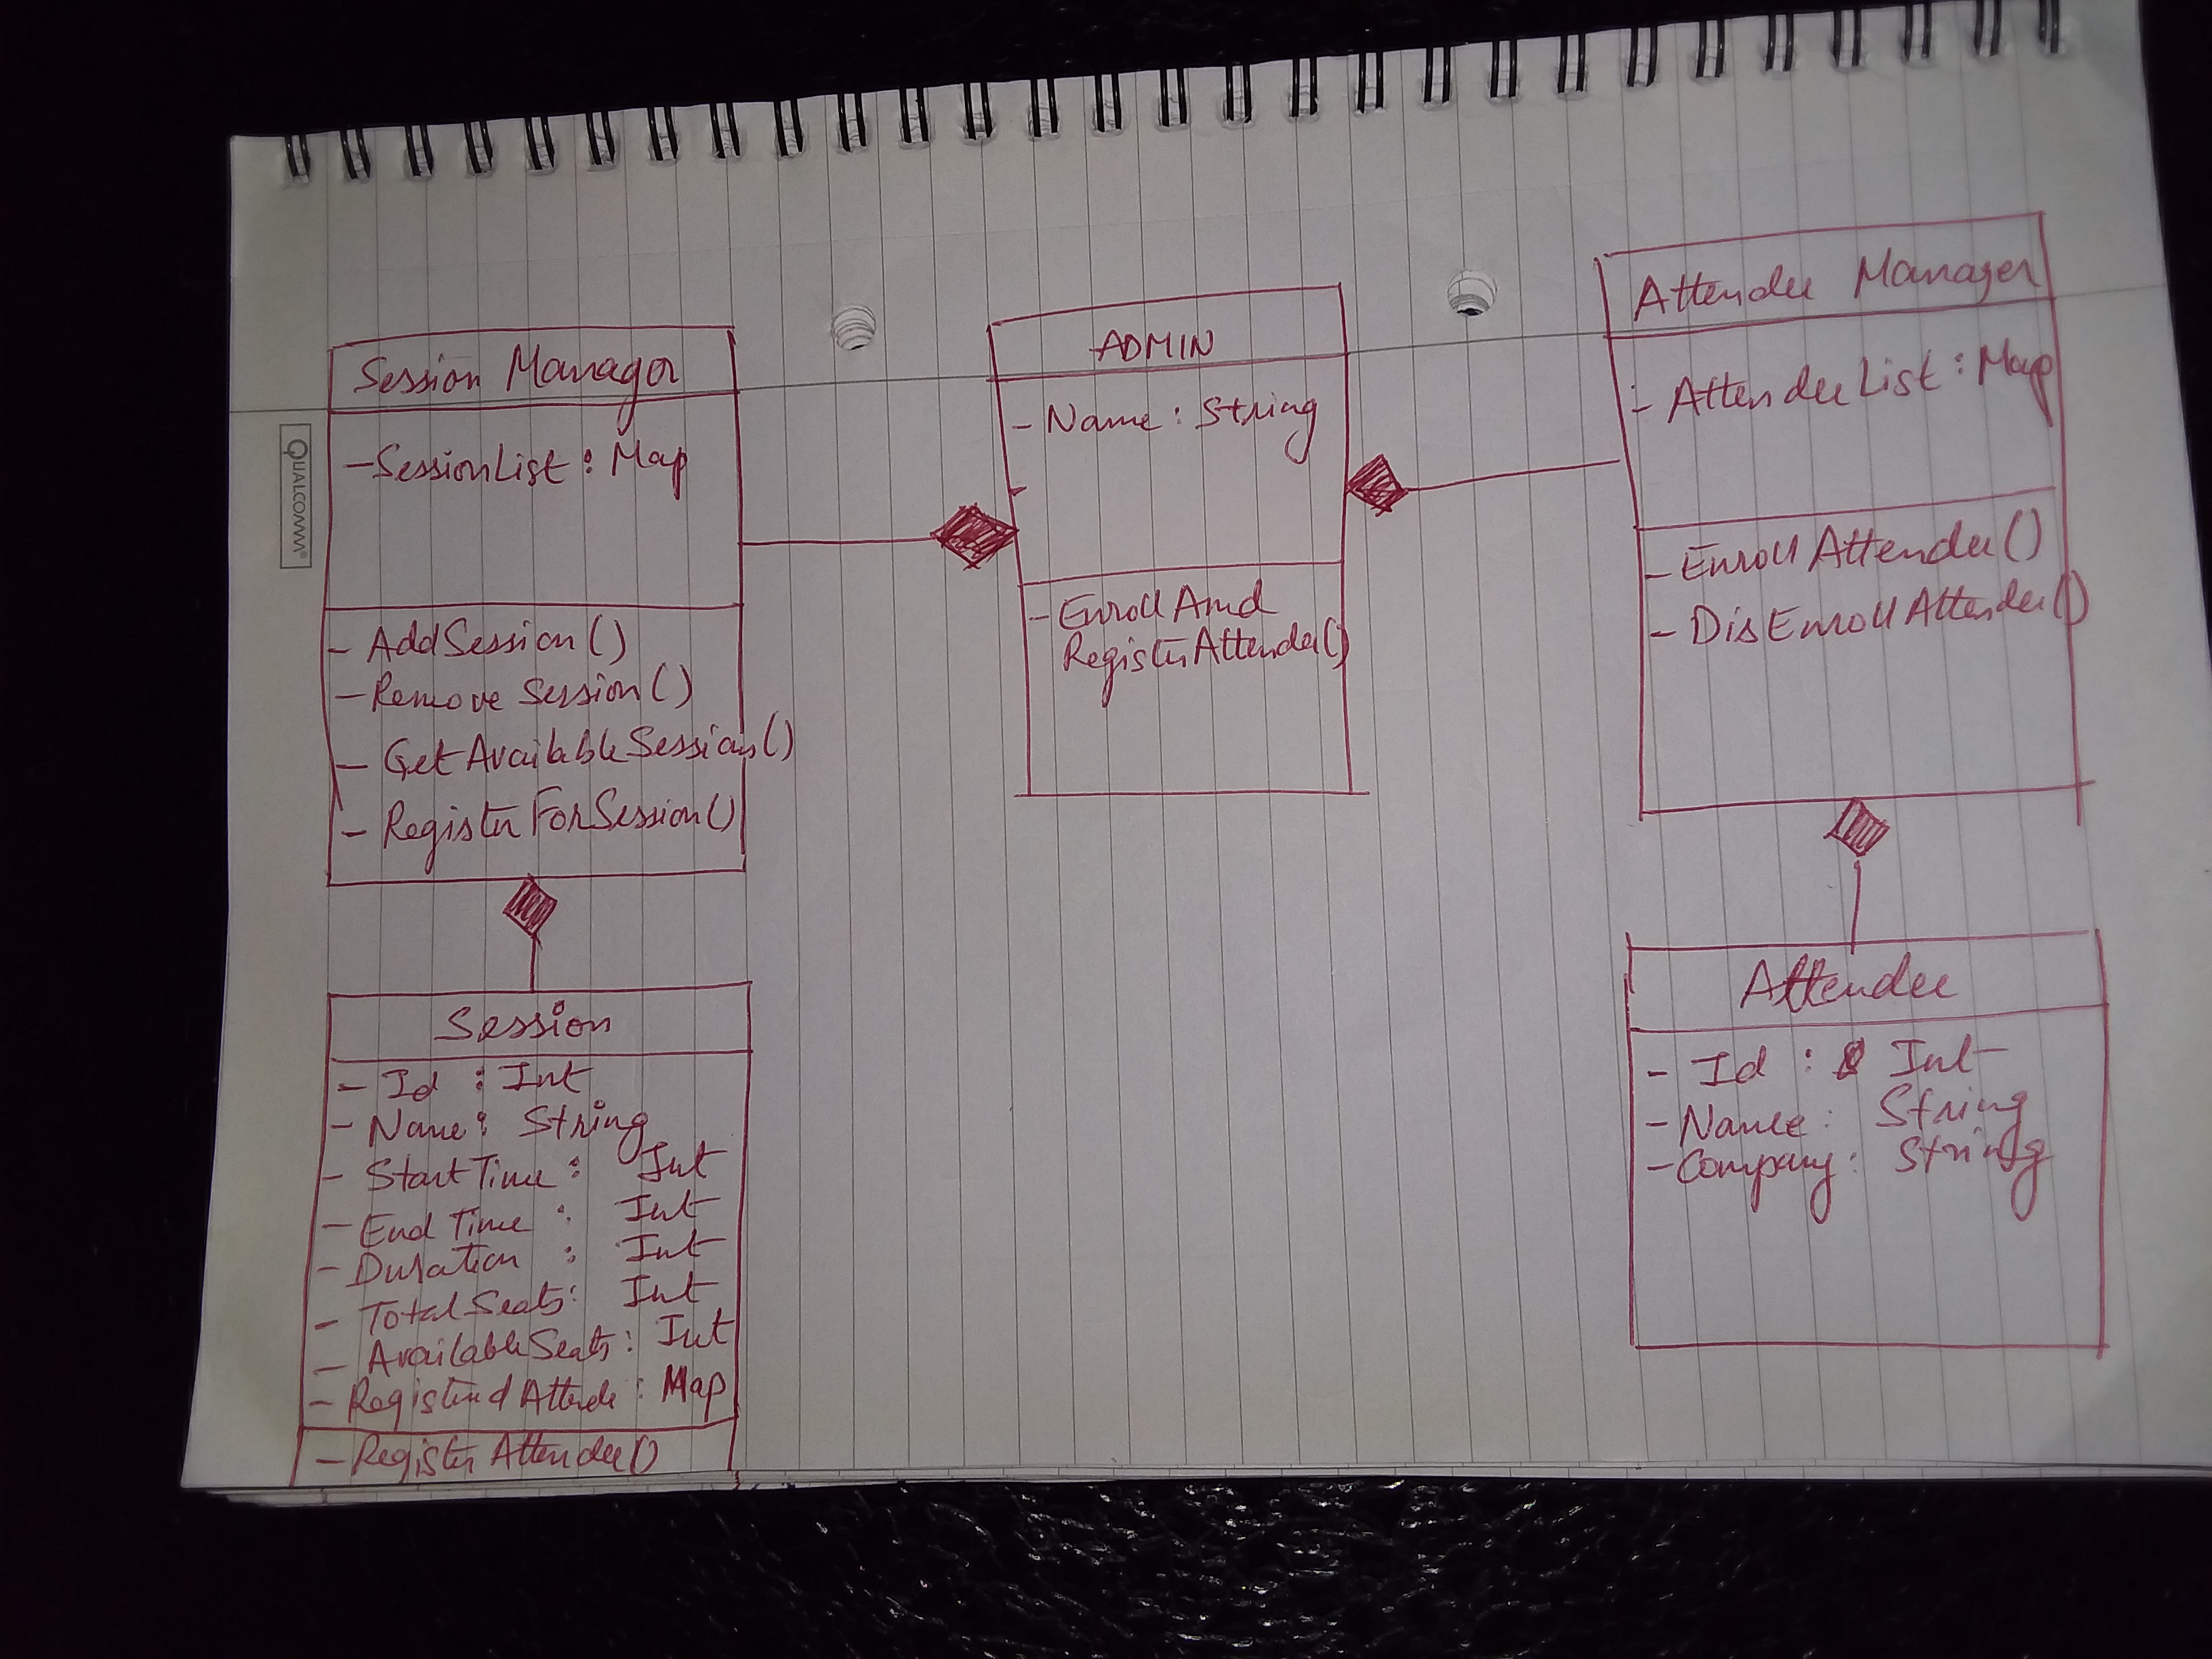 QUALCOMM
Session Manager
- SessionList : Map
- AddSession()
- Remove Session()
- Get Available Session()
- Register For Session()
Session
- Id : Int
- Name : String
- Start Time : Int
- End Time : Int
- Duration : Int
- Total Seats : Int
- Available Seats : Int
- Registerd Attende : Map
- Register Attendee()
ADMIN
- Name : String
- Enroll And
Register Attendee()
Attendee Manager
- Attendee List : Map
- Enroll Attendee()
- DisEnroll Attendee()
Attendee
- Id : Int
- Name : String
- Company : String